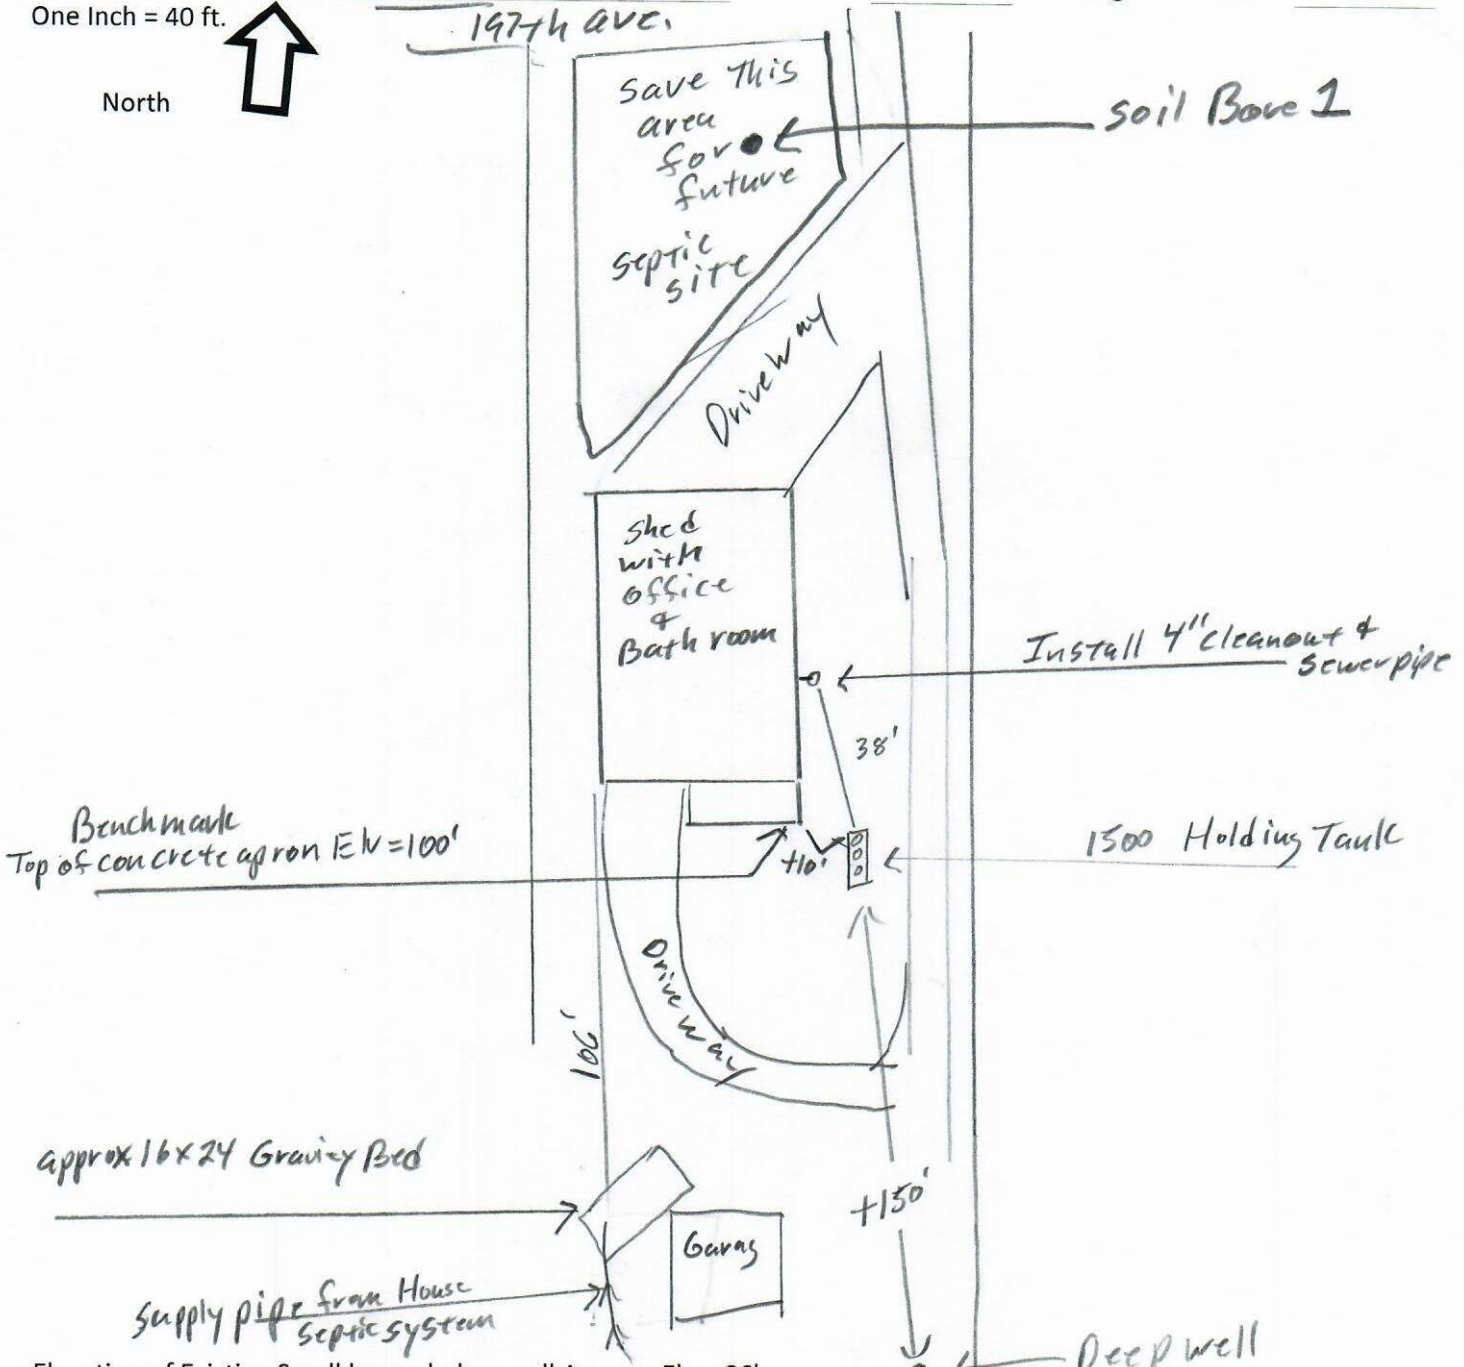 One Inch = 40 ft.
197th ave.
North
Save This
area
for
future
septic
site
Soil Bore 1
Driveway
Shed
with
office
&
Bathroom
Install 4" cleanout &
sewer pipe
38'
Benchmark
Top of concrete apron Elv = 100'
+10'
1500 Holding Tank
Driveway
106'
approx 16x24 Gravity Bed
+150'
Garag
Supply pipe from House
septic system
Deep well